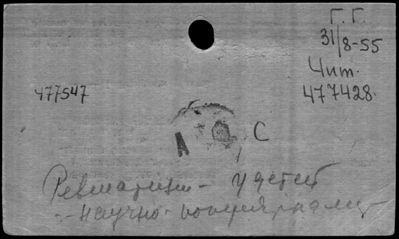 Г. Г.
31/8-55
Чит.
477428
477547
С
Ревматизм - у детей
- научно-популярная